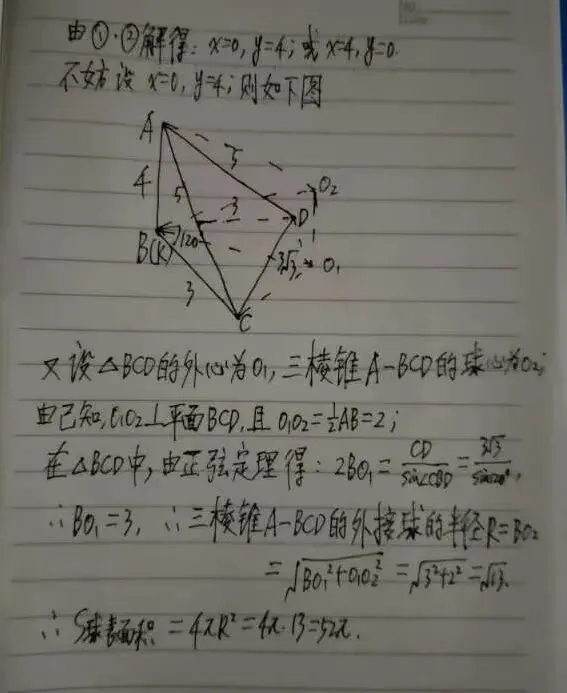 由①·②解得: x=0, y=4; 或 x=4, y=0.
不妨设 x=0, y=4; 则如下图
A
5
O₂
4
5
3
D
B(K)
120
3√3
O₁
3
C
又设△BCD的外心为O₁, 三棱锥A-BCD的球心为O₂;
由已知, O₁O₂⊥平面BCD, 且 O₁O₂=½AB=2;
在△BCD中, 由正弦定理得: 2BO₁=CD/sin∠CBD=3√3/sin120°,
∴BO₁=3, ∴三棱锥A-BCD的外接球的半径R=BO₂
=√(BO₁²+O₁O₂²)=√(3²+2²)=√13.
∴S球表面积=4πR²=4π·13=52π.